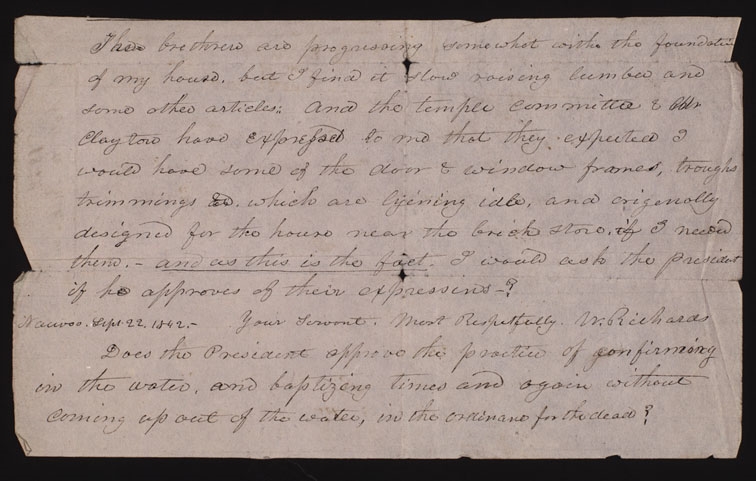 The brethren are progressing somewhat withe the foundatin
of my house, but I find it slow raising lumber and
some other articles; and the temple committee & Bbr
Clayton have expressed to me that they expected I
would have some of the door & window frames, troughs
trimmings &c. which are lyening idle, and origenally
designed for the house near the brick store, if I need
them. - and as this is the fact. I would ask the president
if he approves of their expressins -?
Nauvoo. Sept. 22. 1842. - Your Servant. Most Respetfully. W. Richards
Does the President approve the practice of confirming
in the water, and baptizing times and again without
coming up out of the water, in the ordinanc for the dead?